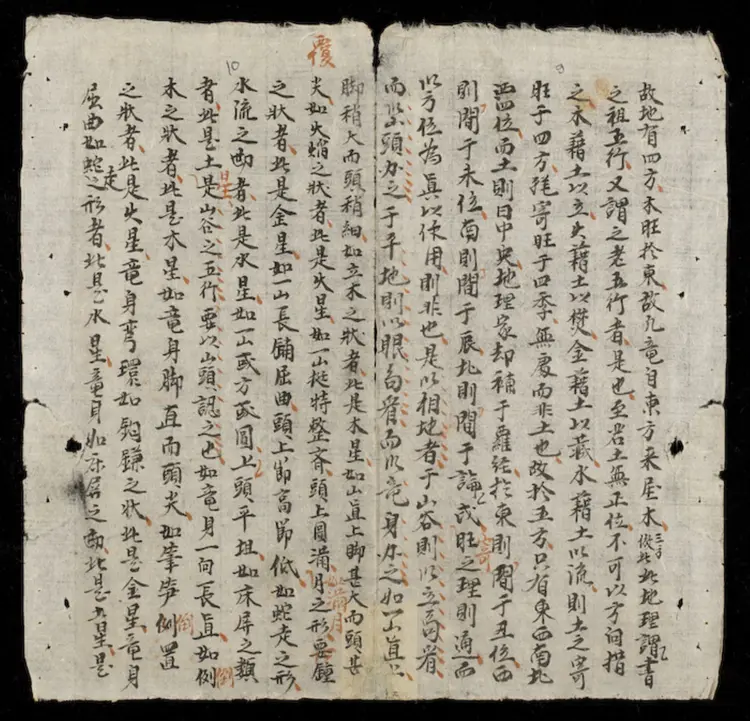 9
故地有四方木旺於東故凡竜自東方來屋木三方倣此此地理謂書
之祖五行又謂之老五行者是也至若土無正位不可以方向指
之木藉土以立火藉土以熒金藉土以藏水藉土以流則土之寄
旺于四方能寄旺于四季無處而非土也故於五方只有東西南北
四位而土則曰中央地理家却補于羅經於東則閒于丑位西
則閒于未位南則閒于辰北則閒于論戌寄旺之理則通而
以方位為真以作用則非也是以相地者于山谷則以立局看
而以山頭加之于平地則以眼勾看而以竜身加之如一山直上
覆
10
脚稍大而頭稍細如立木之狀者此是木星如山直上脚甚大而頭甚
尖如火焰之狀者此是火星如一山挺特整齊頭上圓滿月之形要鐘
如滿月
之狀者此是金星如一山長鋪屈曲頭上節高節低如蛇走之形
水流之勢者此是水星如一山或方或圓上頭平坦如床屏之類
者此是土星是山谷之五行要以山頭認之也如竜身一向長直如倒
木之狀者此是木星如竜身脚直而頭尖如筆笋倒置
之狀者此是火星竜身彎環如鈎鎌之狀此是金星竜身
屈曲如蛇走之形者此是水星竜身如床屏之勢此是土星是